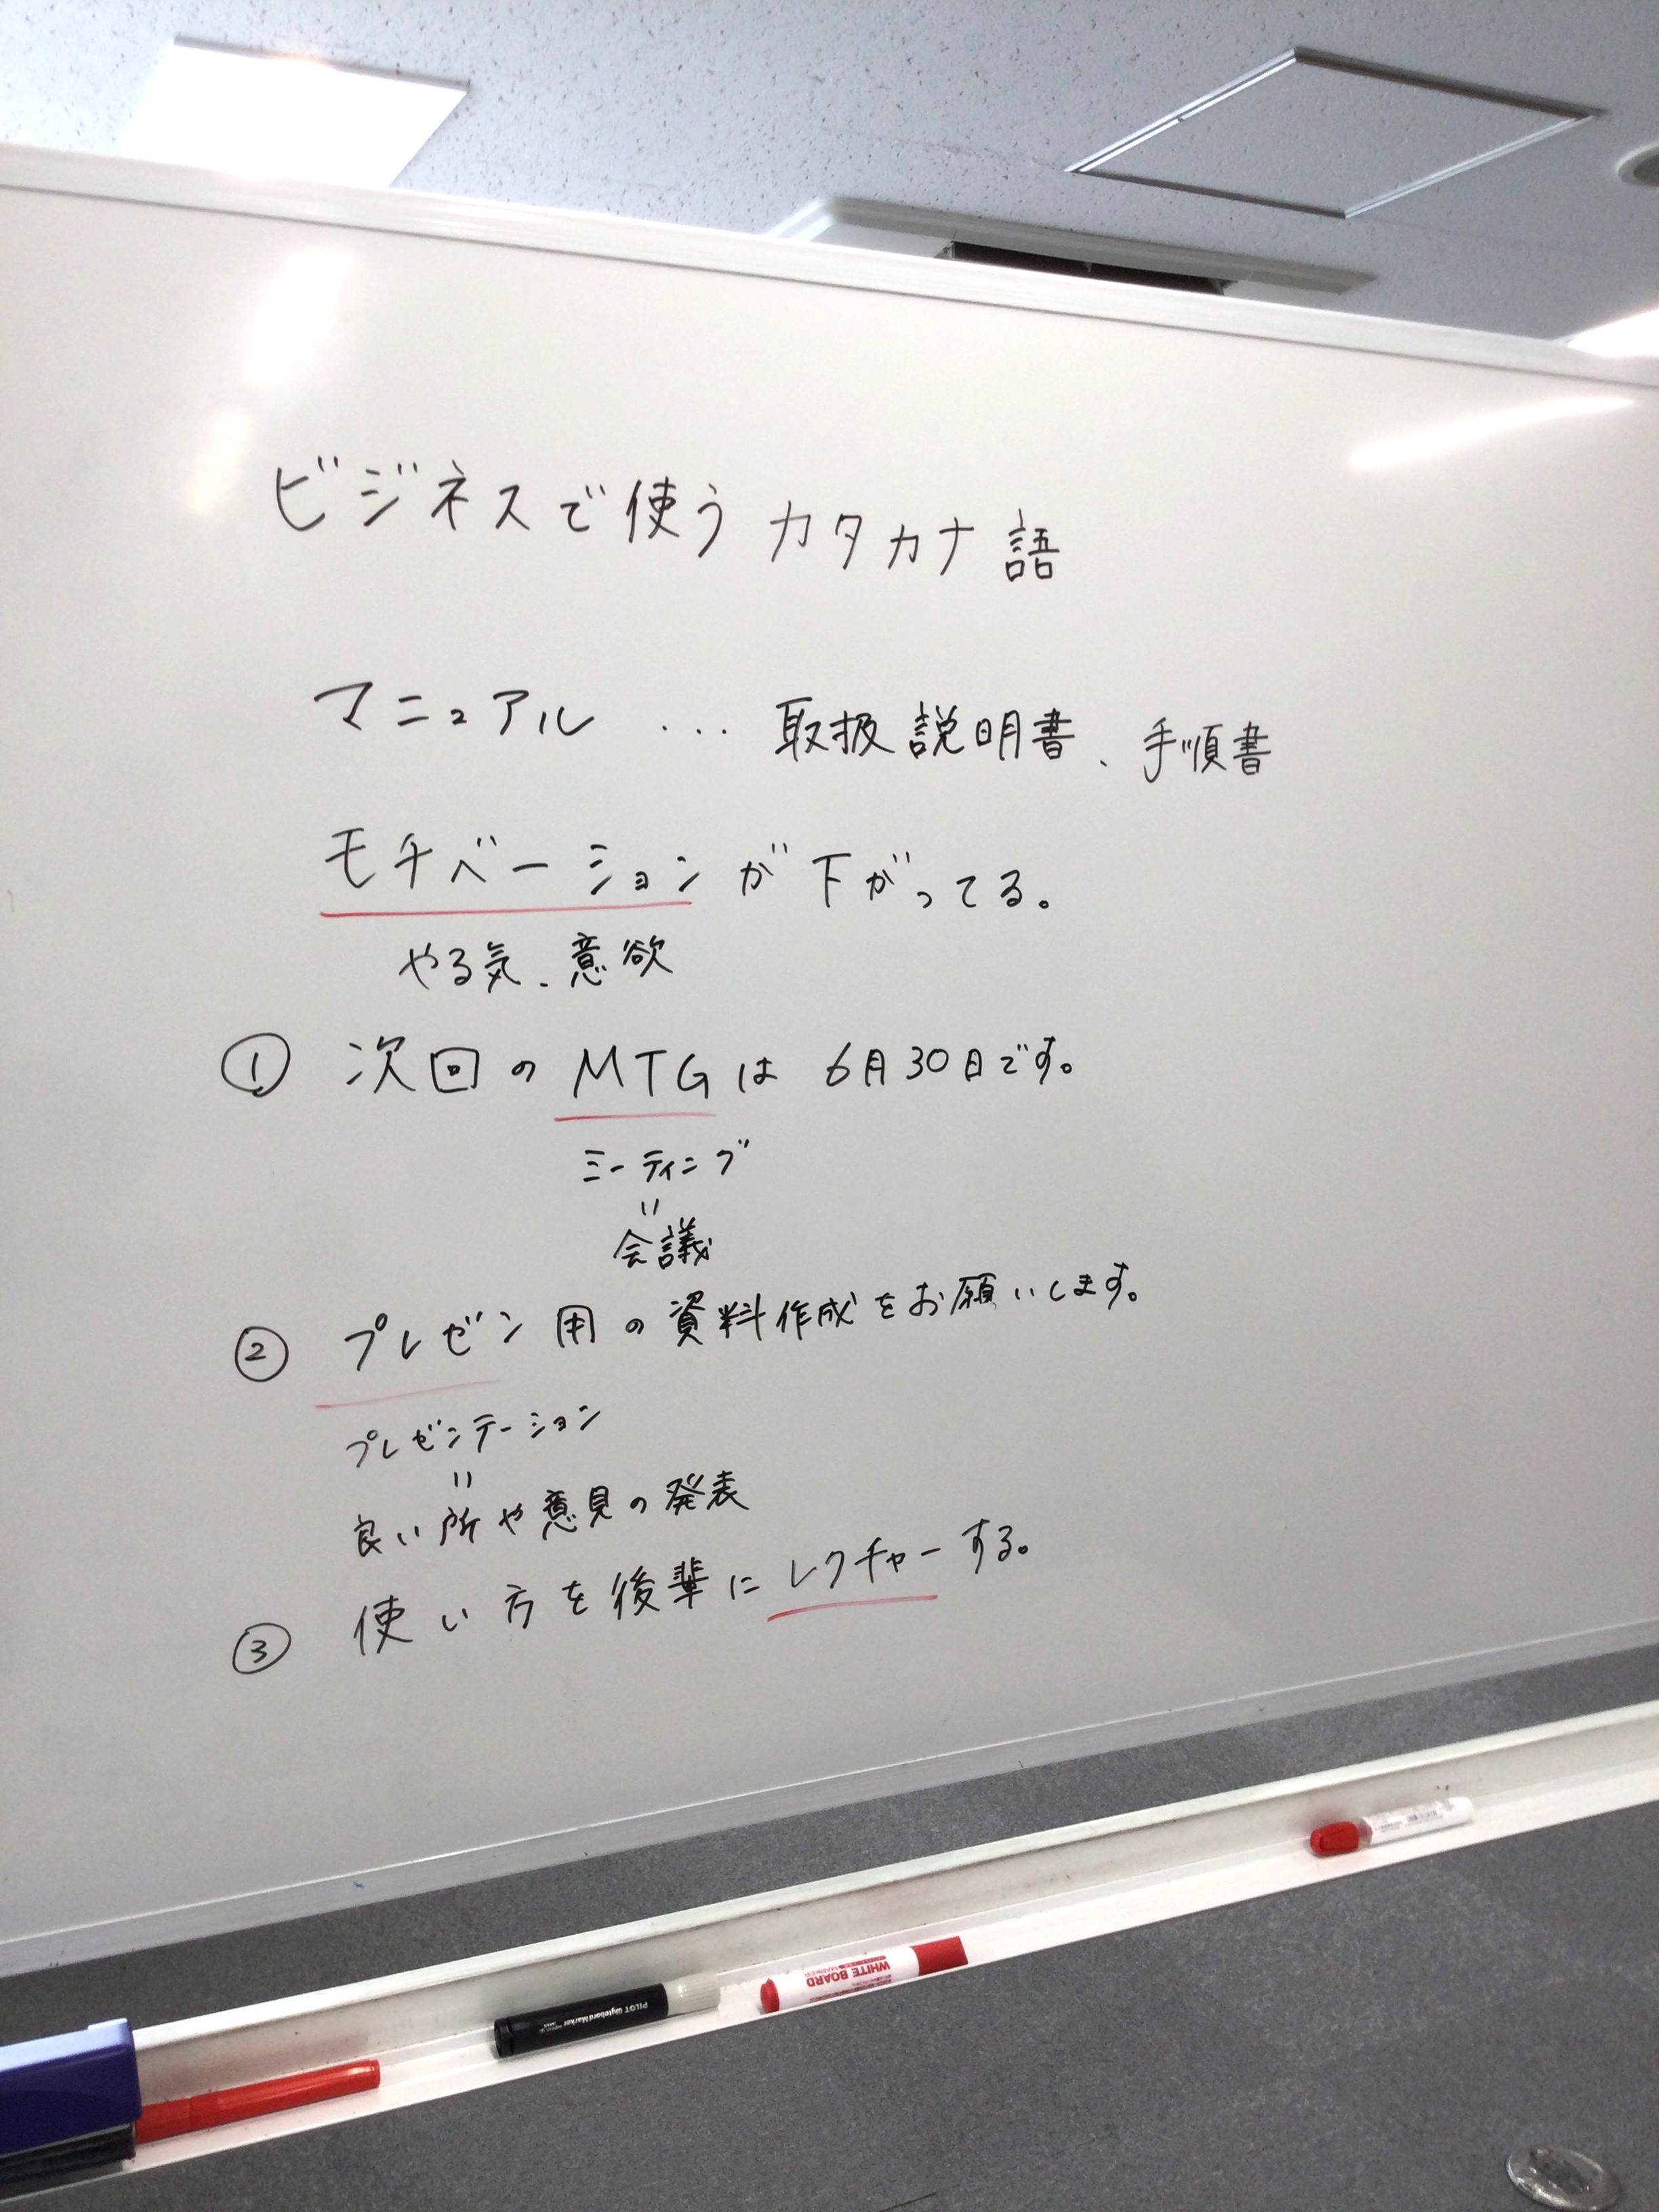 ビジネスで使うカタカナ語
マニュアル … 取扱説明書、手順書
モチベーションが下がってる。
やる気、意欲
① 次回のMTGは6月30日です。
ミーティング
〃
会議
② プレゼン用の資料作成をお願いします。
プレゼンテーション
〃
良い所や意見の発表
③ 使い方を後輩にレクチャーする。
WHITE BOARD
MARKER
PILOT WyteboardMarker